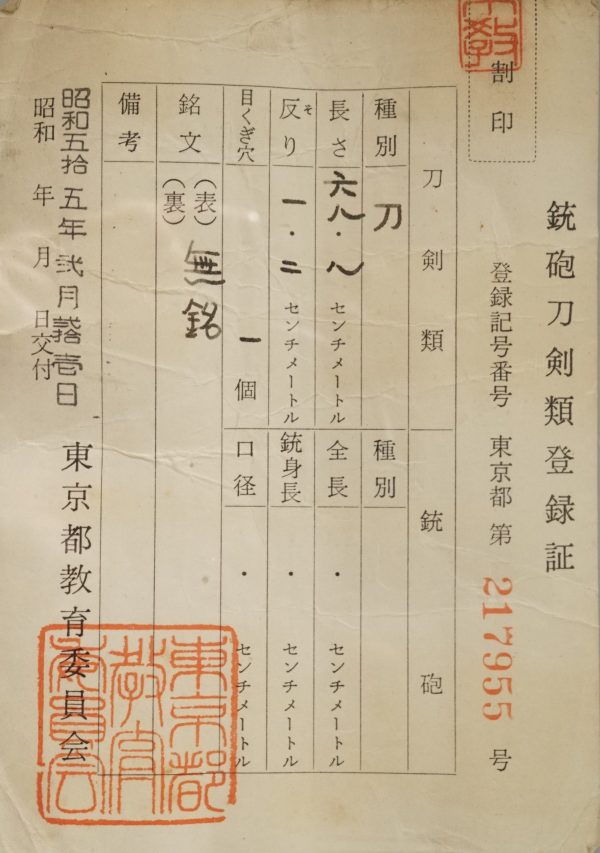 銃砲刀剣類登録証
割印
登録記号番号 東京都 第 217955 号
刀剣類
種別 刀
長さ 六八・八 センチメートル
反り そ 一・二 センチメートル
目くぎ穴 一 個
銘文 (表) 無銘
(裏)
備考
銃砲
種別
全長 ・ センチメートル
銃身長 ・ センチメートル
口径 ・ センチメートル
昭和五拾五年弐月拾壱日
昭和 年 月 日交付
東京都教育委員会
東京都教育委員会